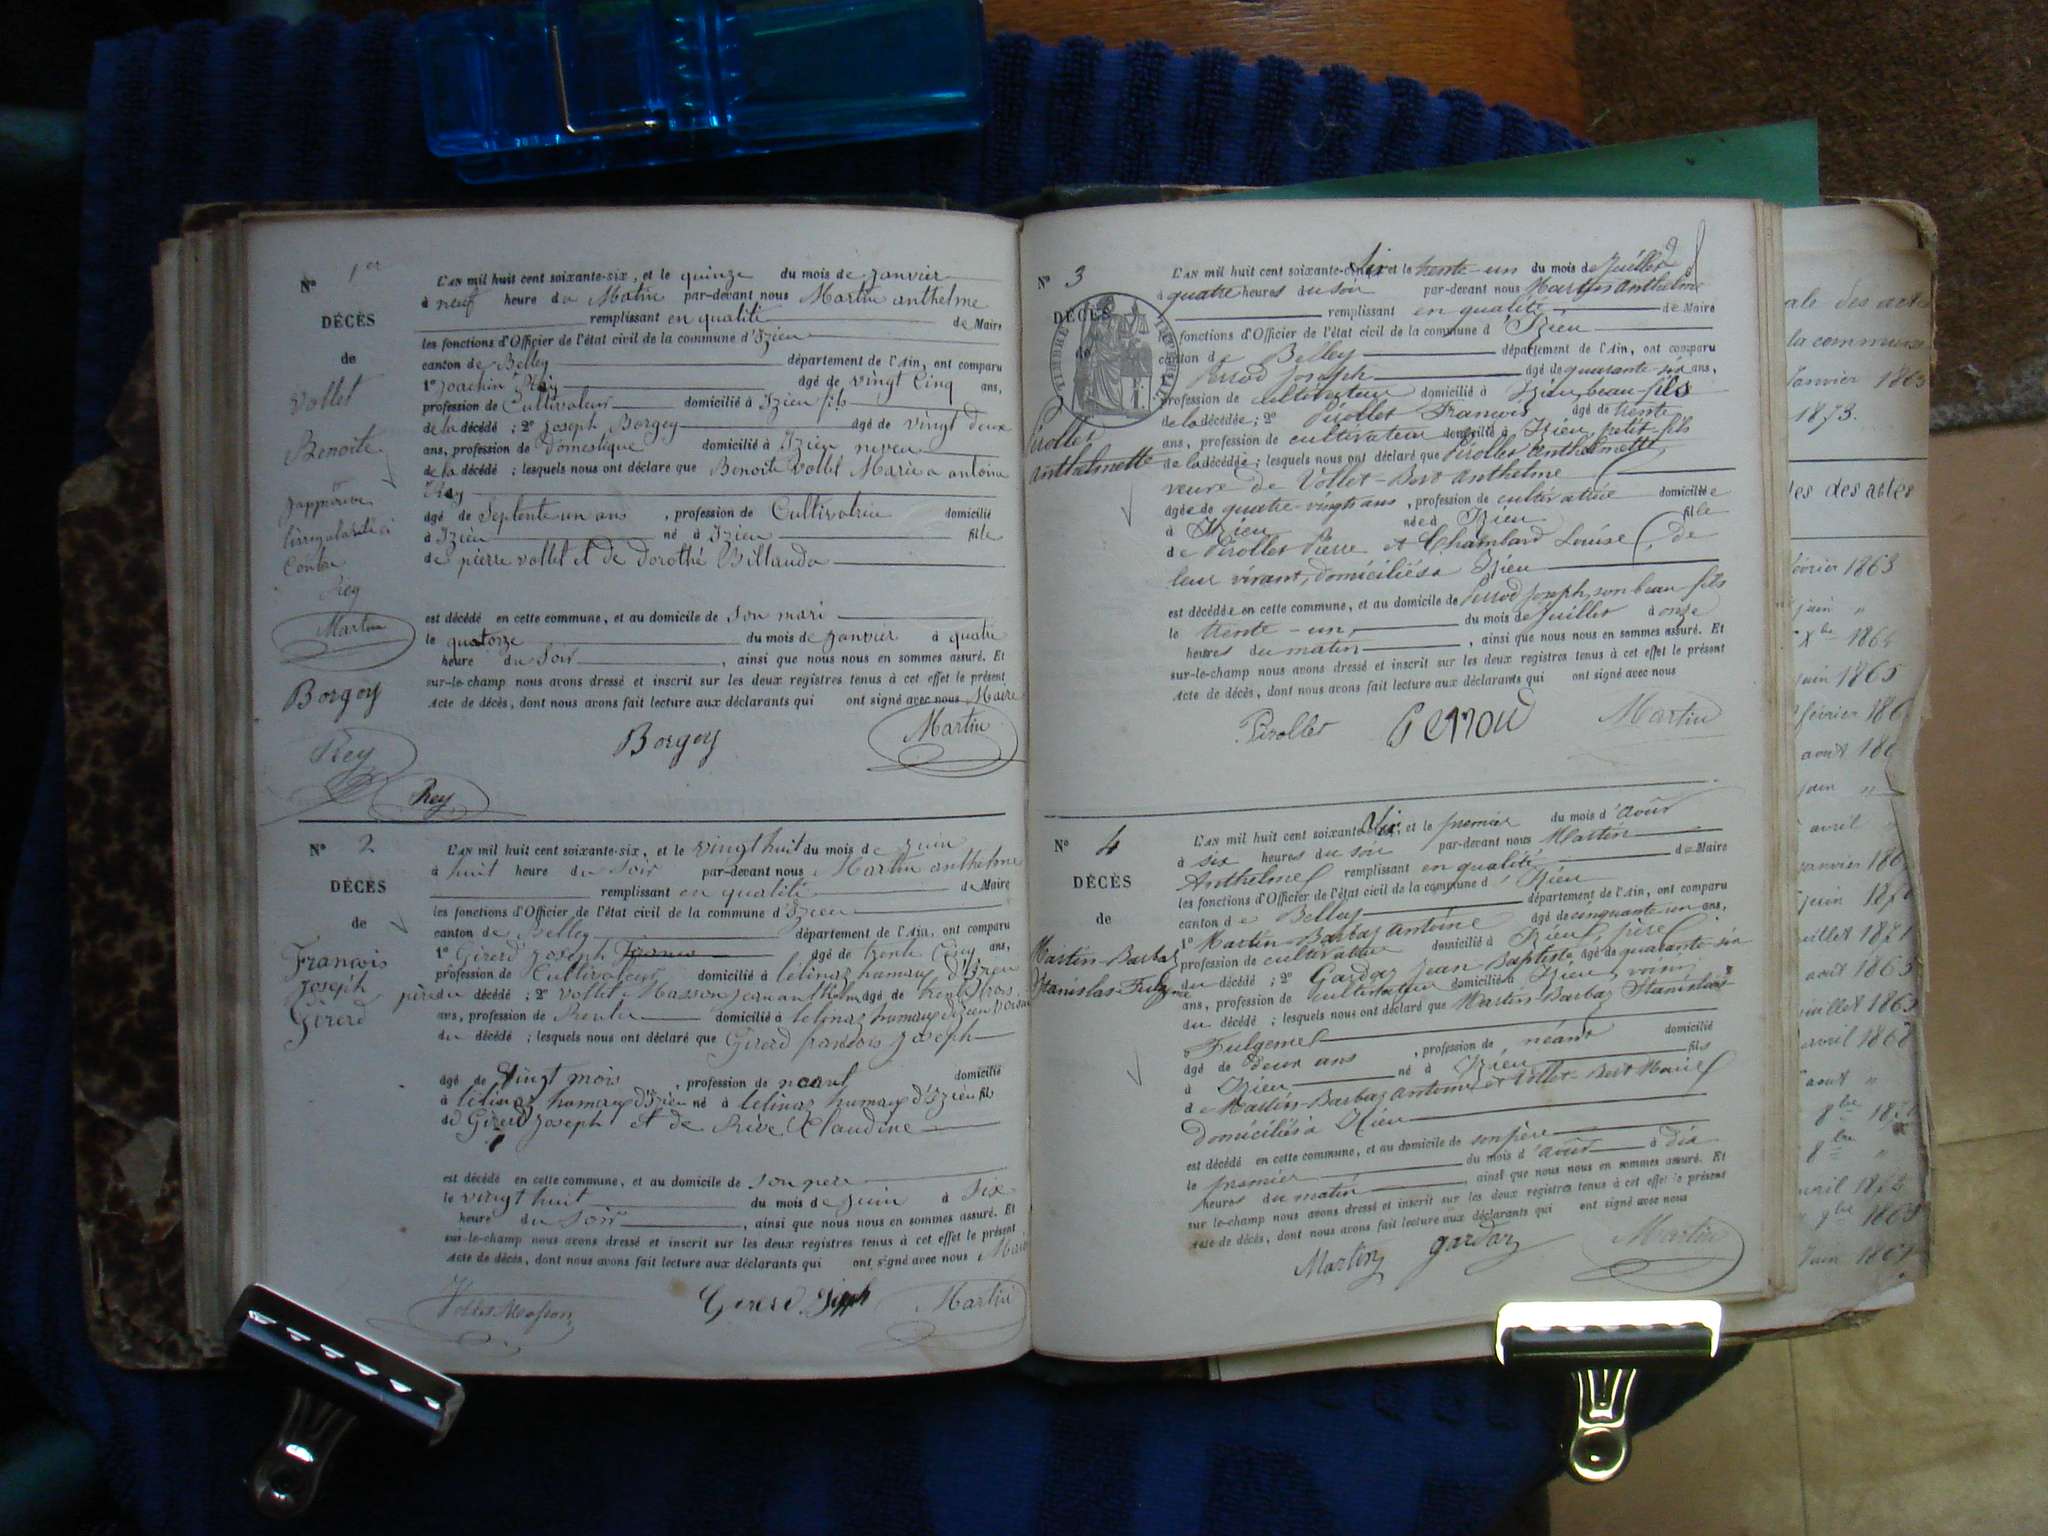 N° 1er
DÉCÈS
de
Vollet
Benoite
J'approuve
l'irrégularité ci
Contre
Rey
Martin
Borgey
Rey
L'AN mil huit cent soixante-six, et le quinze du mois de Janvier
à neuf heure du Matin par-devant nous Martin anthelme
remplissant en qualité de Maire
les fonctions d'Officier de l'état civil de la commune d'Izieu
canton de Belley département de l'Ain, ont comparu
1° Joachin Rey agé de vingt Cinq ans,
profession de Cultivateur domicilié à Izieu fils
de la décédé ; 2° Joseph Borgey agé de vingt deux
ans, profession de Domestique domicilié à Izieu neveu
de la décédé ; lesquels nous ont déclaré que Benoite Vollet Mariée a antoine
Rey
agé de Septente un ans , profession de Cultivatrice domicilié
à Izieu né à Izieu fille
de pierre vollet et de Dorothé Billauda
est décédé en cette commune, et au domicile de Son mari
le quatorze du mois de Janvier à quatre
heure du Soir , ainsi que nous nous en sommes assuré. Et
sur-le-champ nous avons dressé et inscrit sur les deux registres tenus à cet effet le présent
Acte de décès, dont nous avons fait lecture aux déclarants qui ont signé avec nous Maire
Borgey Martin
Rey
N° 2
DÉCÈS
de
François
Joseph
Girerd
L'AN mil huit cent soixante-six, et le vingt huit du mois de Juin
à huit heure du Soir par-devant nous Martin anthelme
remplissant en qualité de Maire
les fonctions d'Officier de l'état civil de la commune d'Izieu
canton de Belley département de l'Ain, ont comparu
1° Girerd Joseph agé de trente Cinq ans,
profession de Cultivateur domicilié à lelinaz hamaux d'Izieu
père du décédé ; 2° Vollet Masson Jean anthelm agé de trente trois
ans, profession de Rentier domicilié à lelinaz hamaux d'Izieu voisin
du décédé ; lesquels nous ont déclaré que Girerd françois Joseph
agé de Vingt mois , profession de neant domicilié
à lelinaz hamaux d'Izieu né à lelinaz hamaux d'Izieu fils
de Girerd Joseph et de Rive Claudine
est décédé en cette commune, et au domicile de son pere
le vingt huit du mois de Juin à Six
heure du Soir , ainsi que nous nous en sommes assuré. Et
sur-le-champ nous avons dressé et inscrit sur les deux registres tenus à cet effet le présent
Acte de décès, dont nous avons fait lecture aux déclarants qui ont signé avec nous Maire
Vollet Masson Girerd Joseph Martin
N° 3
DÉCÈS
de
TIMBRE IMPÉRIAL
Pirollet
anthelmette
L'AN mil huit cent soixante-six et le trente-un du mois de Juillet
à quatre heures du soir par-devant nous Martin Anthelme
remplissant en qualité de Maire
les fonctions d'Officier de l'état civil de la commune d'Izieu
canton de Belley département de l'Ain, ont comparu
Perrod Joseph agé de quarante-six ans,
profession de cultivateur domicilié à Izieu beau-fils
de la décédée ; 2° Pirollet François agé de trente
ans, profession de cultivateur domicilié à Izieu petit-fils
de la décédée ; lesquels nous ont déclaré que Pirollet Anthelmette
veuve de Vollet-Bert Anthelme
agée de quatre-vingts ans , profession de cultivatrice domiciliée
à Izieu née à Izieu fille
de Pirollet Pierre et Chambard Louise, de
leur vivant, domiciliés à Izieu
est décédée en cette commune, et au domicile de Perrod Joseph, son beau fils
le trente-un, du mois de Juillet à onze
heures du matin , ainsi que nous nous en sommes assuré. Et
sur-le-champ nous avons dressé et inscrit sur les deux registres tenus à cet effet le présent
Acte de décès, dont nous avons fait lecture aux déclarants qui ont signé avec nous
Pirollet Perrod Martin
N° 4
DÉCÈS
de
Martin-Barbaz
Stanislas-Fulgence
L'AN mil huit cent soixante-six, et le premier du mois d'août
à six heures du soir par-devant nous Martin
Anthelme remplissant en qualité de Maire
les fonctions d'Officier de l'état civil de la commune d'Izieu
canton de Belley département de l'Ain, ont comparu
1° Martin-Barbaz Antoine agé de cinquante-un ans,
profession de cultivateur domicilié à Izieu, père
du décédé ; 2° Gardaz Jean-Baptiste agé de quarante-six
ans, profession de cultivateur domicilié à Izieu, voisin
du décédé ; lesquels nous ont déclaré que Martin-Barbaz Stanislas
Fulgence
agé de deux ans , profession de néant domicilié
à Izieu né à Izieu fils
de Martin-Barbaz Antoine et Vollet-Bert Marie
domiciliés à Izieu
est décédé en cette commune, et au domicile de son père
le premier du mois d'août à dix
heures du matin , ainsi que nous nous en sommes assuré. Et
sur le-champ nous avons dressé et inscrit sur les deux registres tenus à cet effet le présent
Acte de décès, dont nous avons fait lecture aux déclarants qui ont signé avec nous
Martin gardaz Martin
des actes
la commune
Janvier 1863
1873.
des actes
février 1863
juin "
Xbre 1864
juin 1865
février 186
août 186
juin "
avril "
janvier 186
juin 187
juillet 1871
août 1863
juillet 1863
avril 1868
août "
8bre 187
8bre "
avril 1872
9bre 1865
Juin 1867